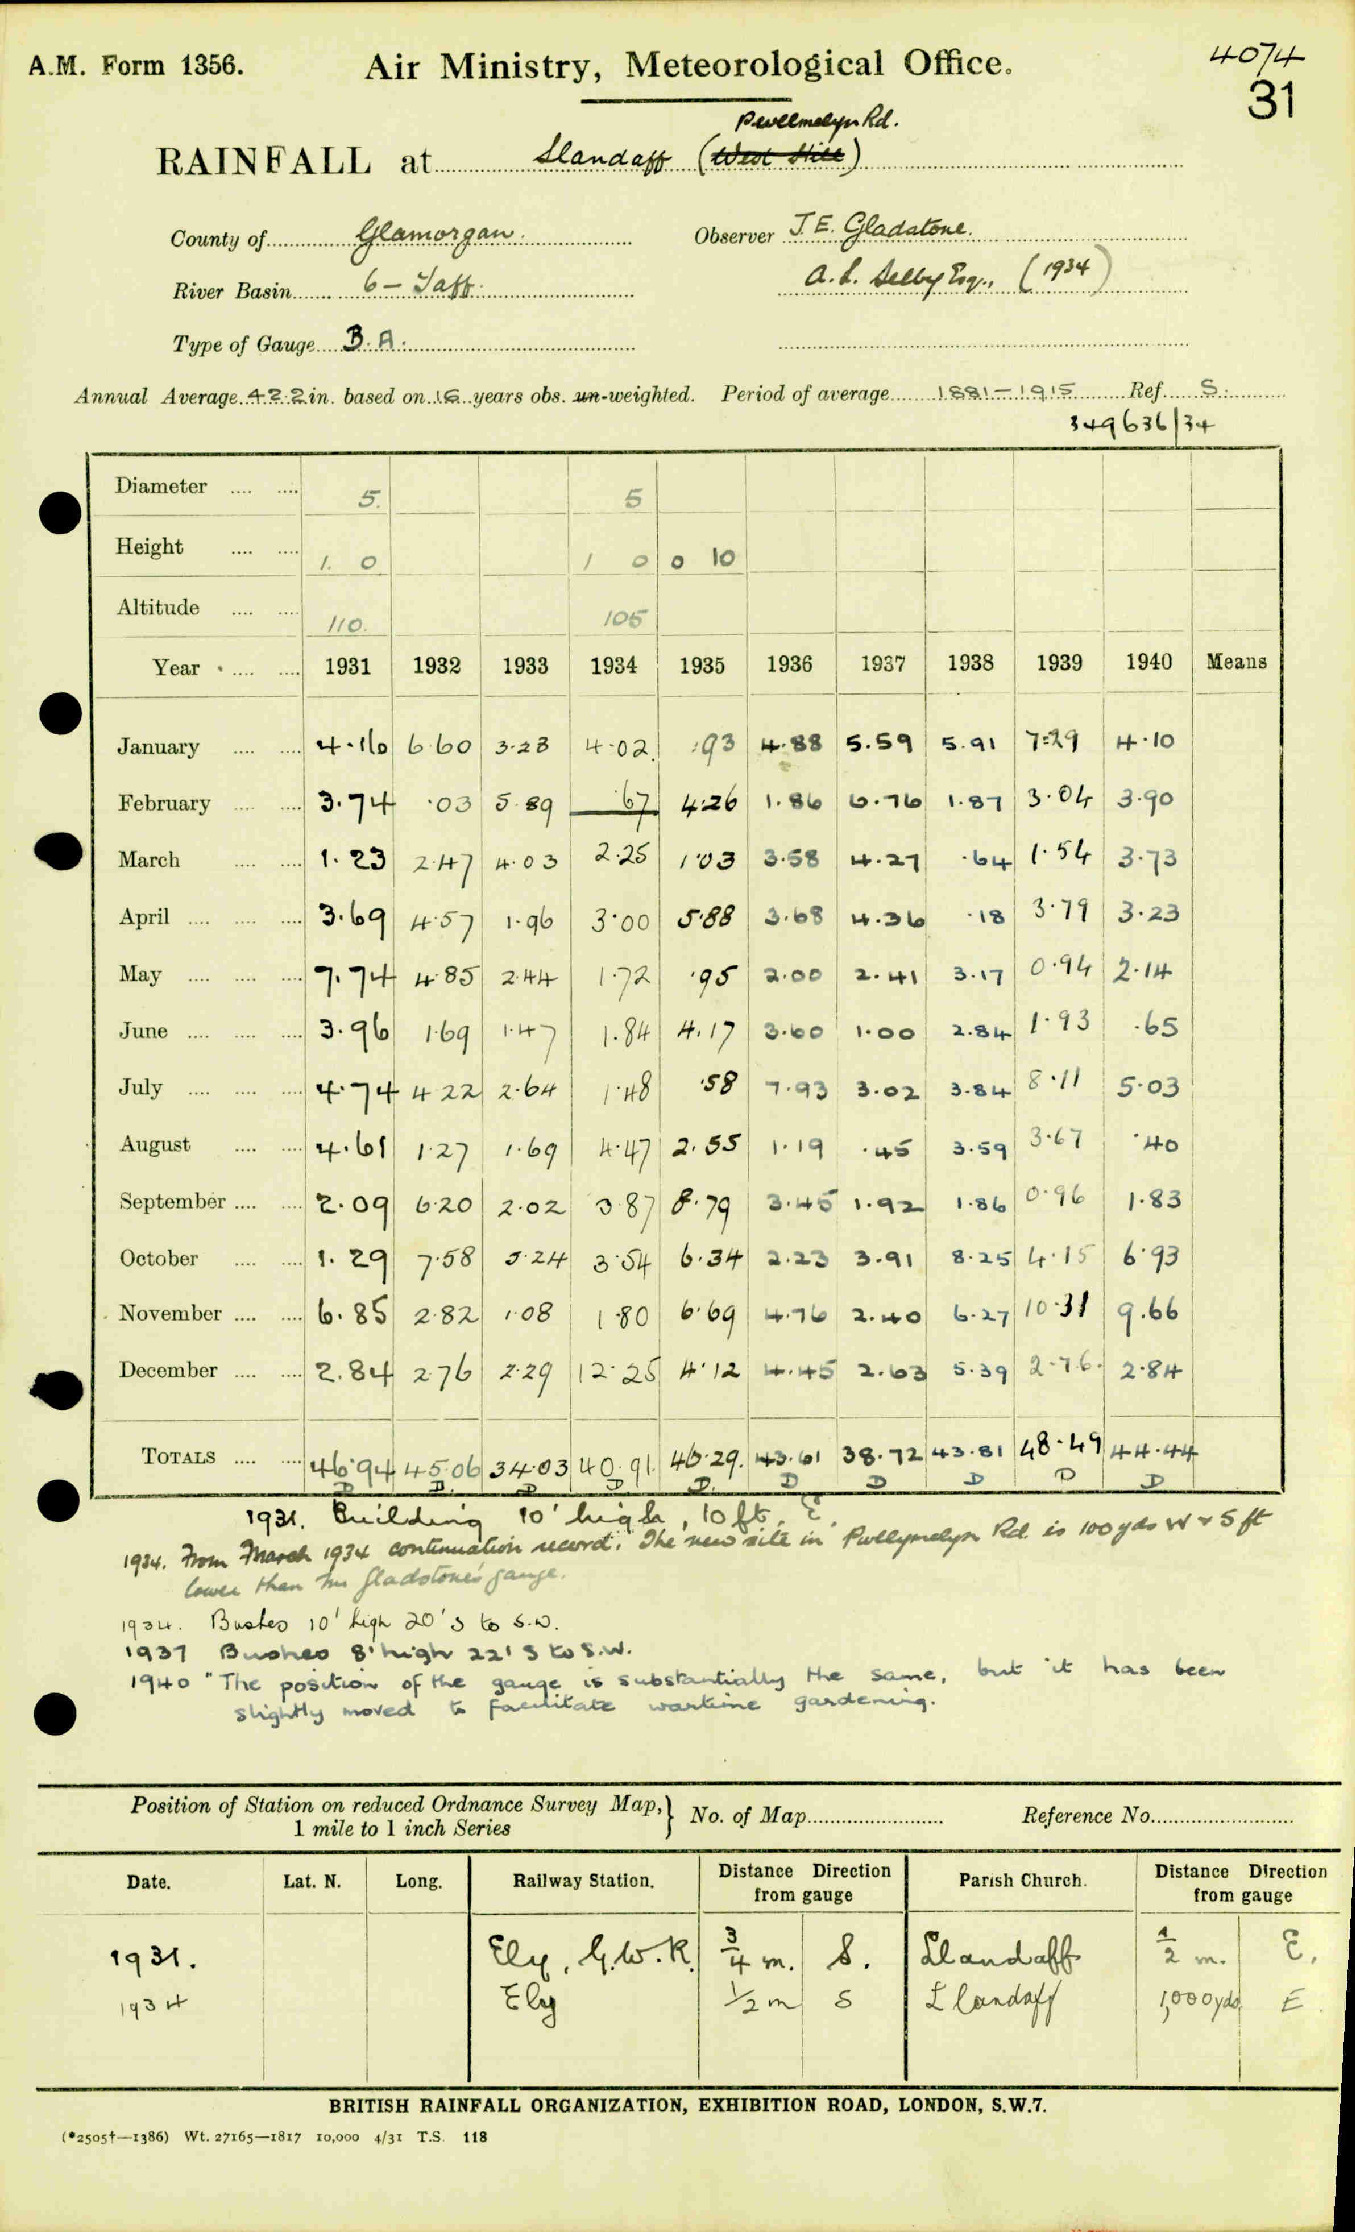 A.M. Form 1356.
Air Ministry, Meteorological Office.
4074
31
Pwllmelyn Rd.
RAINFALL at Llandaff (West Hill)
County of Glamorgan. Observer J.E. Gladstone.
River Basin 6 – Taff. A.L. Selby Esq., (1934)
Type of Gauge B.A.
Annual Average 42.2 in. based on 16 years obs. un-weighted. Period of average 1881–1915 Ref. S.
349636/34
Diameter 5. 5
Height 1. 0 1 0 0 10
Altitude 110. 105
Year 1931 1932 1933 1934 1935 1936 1937 1938 1939 1940 Means
January 4.16 6.60 3.28 4.02 .93 4.88 5.59 5.91 7.29 4.10
February 3.74 .03 5.89 .67 4.26 1.86 6.76 1.87 3.04 3.90
March 1.23 2.47 4.03 2.25 1.03 3.58 4.27 .64 1.54 3.73
April 3.69 4.57 1.96 3.00 5.88 3.68 4.36 .18 3.79 3.23
May 7.74 4.85 2.44 1.72 .95 2.00 2.41 3.17 0.94 2.14
June 3.96 1.69 1.47 1.84 4.17 3.60 1.00 2.84 1.93 .65
July 4.74 4.22 2.64 1.48 .58 7.93 3.02 3.84 8.11 5.03
August 4.61 1.27 1.69 4.47 2.55 1.19 .45 3.59 3.67 .40
September 2.09 6.20 2.02 3.87 8.79 3.45 1.92 1.86 0.96 1.83
October 1.29 7.58 5.24 3.54 6.34 2.23 3.91 8.25 4.15 6.93
November 6.85 2.82 1.08 1.80 6.69 4.76 2.40 6.27 10.31 9.66
December 2.84 2.76 2.29 12.25 4.12 4.45 2.63 5.39 2.76. 2.84
TOTALS 46.94 45.06 34.03 40.91 46.29. 43.61 38.72 43.81 48.49 44.44
D D. D D D. D D D D D
1931. Building 10' high, 10 ft. E.
1934. From March 1934 continuation record. The new site in Pwllymelyn Rd is 100 yds W & 5 ft
lower than Mr Gladstone's gauge.
1934. Bushes 10' high 20' S to S.W.
1937 Bushes 8' high 22' S to S.W.
1940 "The position of the gauge is substantially the same, but it has been
slightly moved to facilitate wartime gardening.
Position of Station on reduced Ordnance Survey Map, 1 mile to 1 inch Series } No. of Map Reference No.
Date. Lat. N. Long. Railway Station. Distance Direction from gauge Parish Church. Distance Direction from gauge
1931. Ely, G.W.R. 3/4 m. S. Llandaff 1/2 m. E.
1934 Ely 1/2 m S Llandaff 1,000 yds E.
BRITISH RAINFALL ORGANIZATION, EXHIBITION ROAD, LONDON, S.W.7.
(*2505†—1386) Wt. 27165—1817 10,000 4/31 T.S. 118